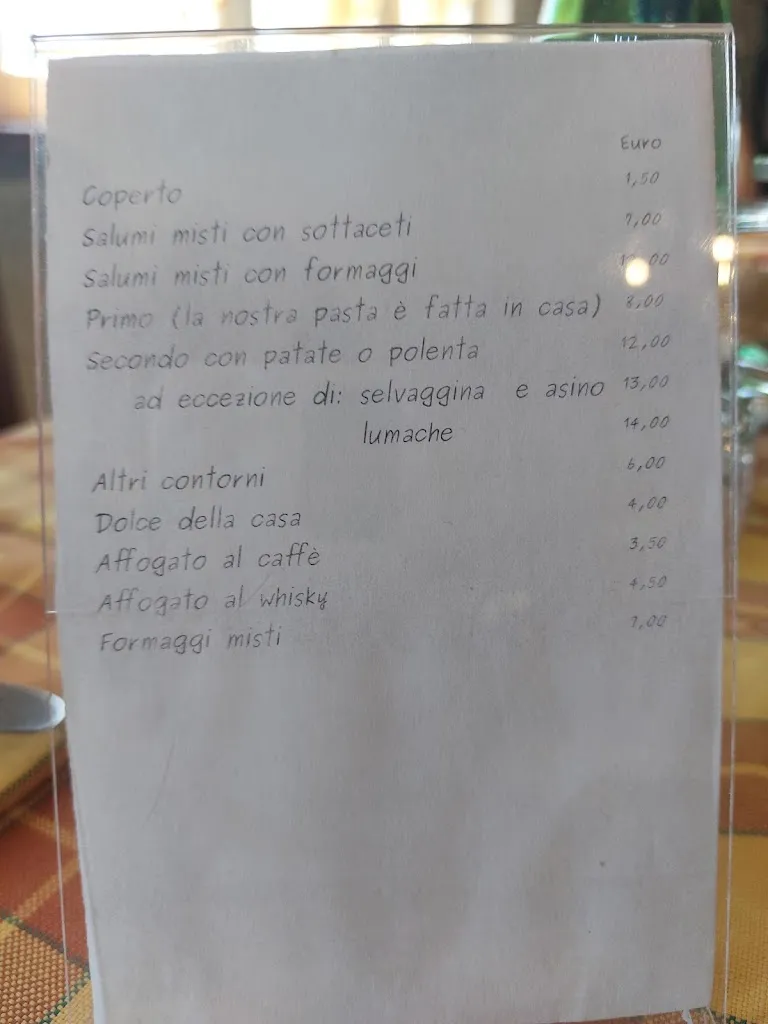 Euro
Coperto 1,50
Salumi misti con sottaceti 7,00
Salumi misti con formaggi
Primo (la nostra pasta è fatta in casa) 8,00
Secondo con patate o polenta 12,00
ad eccezione di: selvaggina e asino 13,00
lumache 14,00
Altri contorni 6,00
Dolce della casa 4,00
Affogato al caffè 3,50
Affogato al whisky 4,50
Formaggi misti 7,00